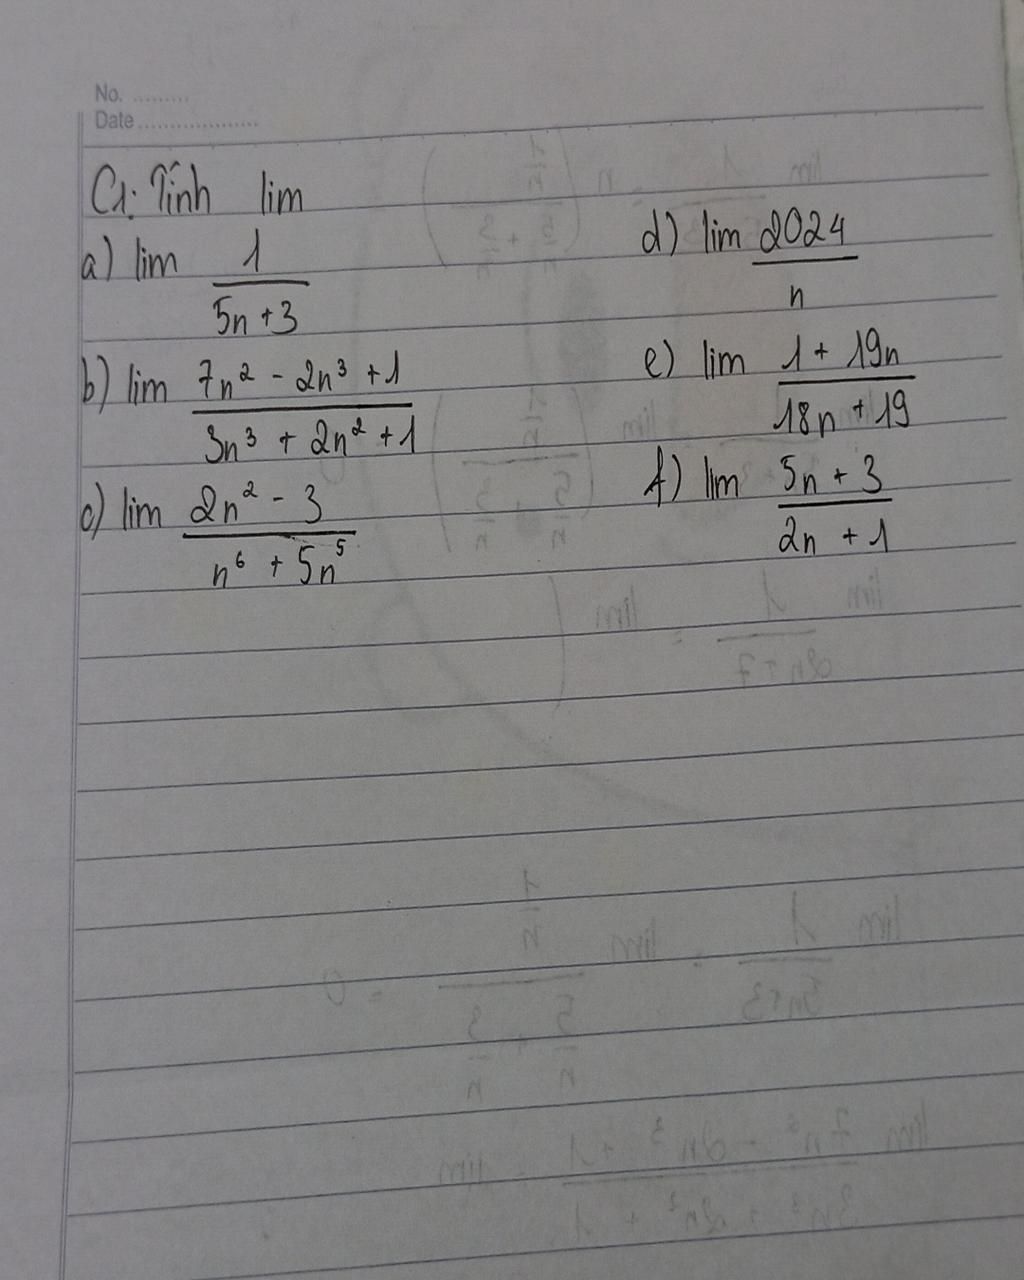 No. .........
Date ...................
C1: Tính lim
a) lim 1/(5n + 3)
b) lim (7n² - 2n³ + 1)/(3n³ + 2n² + 1)
c) lim (2n² - 3)/(n⁶ + 5n⁵)
d) lim 2024/n
e) lim (1 + 19n)/(18n + 19)
f) lim (5n + 3)/(2n + 1)